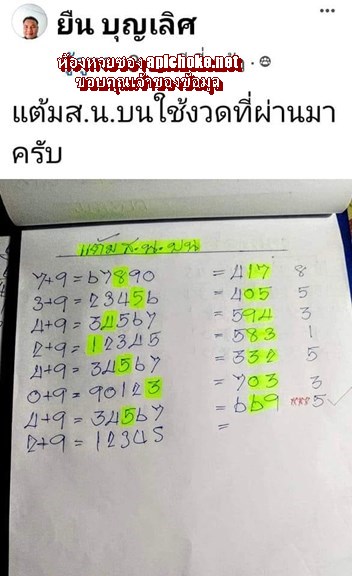 ยืน บุญเลิศ
ห้องหวยซอง aplchoke.net
ขอบคุณเจ้าของข้อมูล
แต้มส.น.บนใช้งวดที่ผ่านมา
ครับ
แต้ม ส.น.บน
7+9 = 67890 = 417 8
3+9 = 23456 = 405 5
4+9 = 34567 = 594 3
2+9 = 12345 = 583 1
4+9 = 34567 = 332 5
0+9 = 90123 = 703 3
4+9 = 34567 = 669 5
2+9 = 12345 =